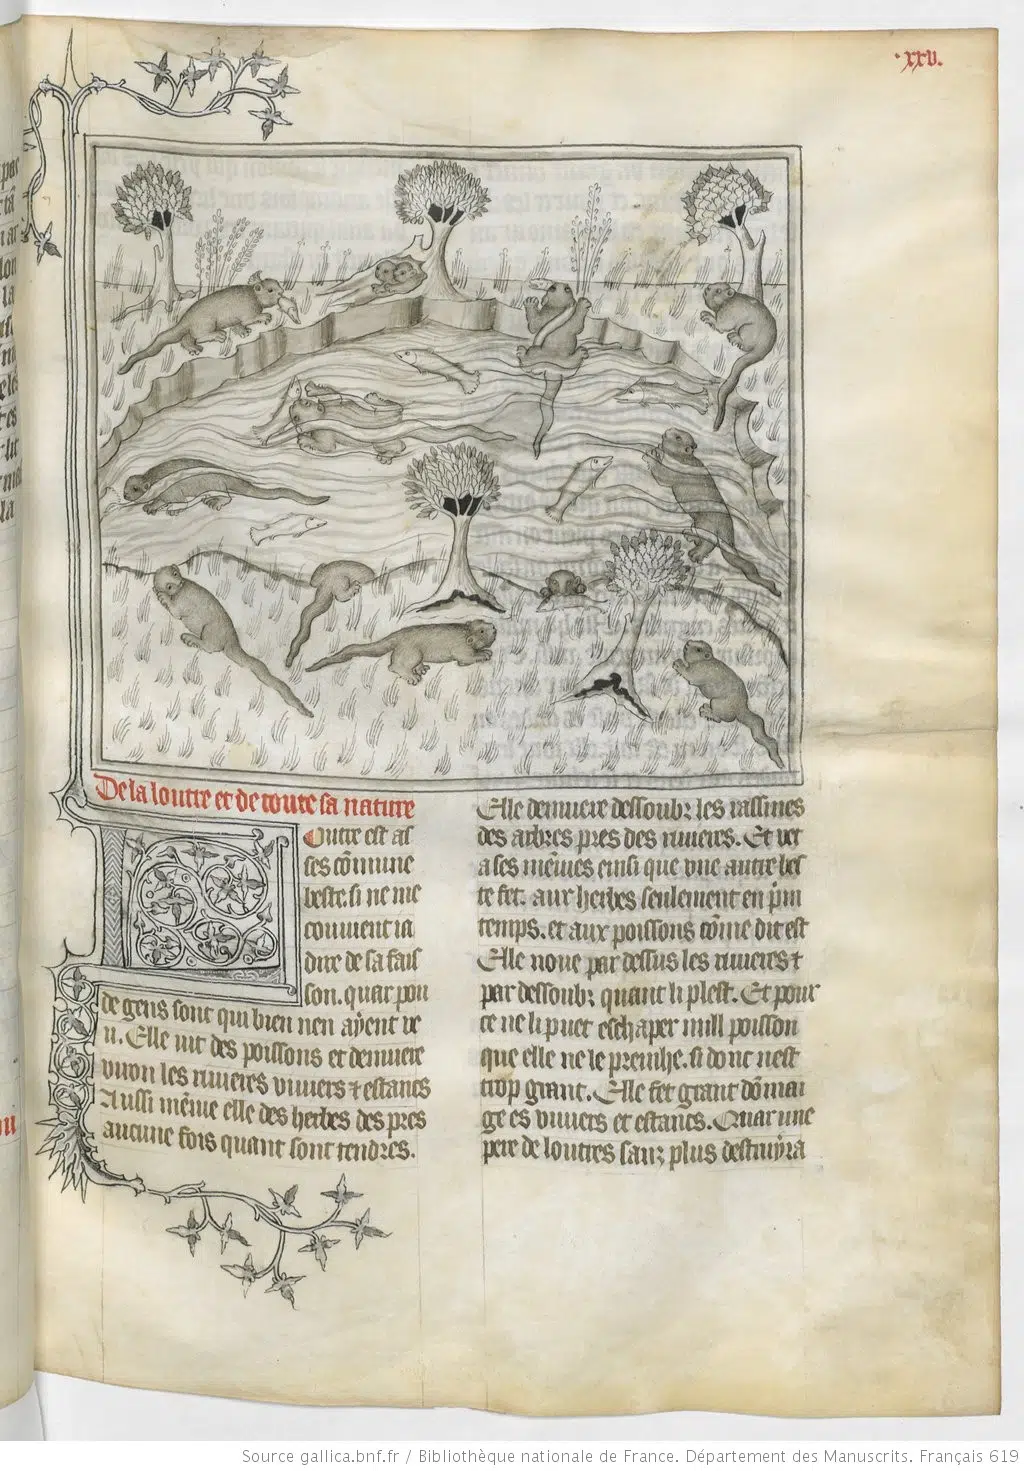 ·xxv.
De la loutre et de toute sa nature
Loutre est as
ses cõmune
beste. si ne me
conuient ia
dire de sa fais
son. quar pou
de gens sont qui bien nen ayent ve
u. Elle uit des poissons et demuere
uiron les riuieres viuiers ⁊ estancs
Aussi mẽme elle des herbes des pres
aucune fois quant sont tendres.
Elle demuere dessoubz les rassines
des arbres pres des riuieres. Et uet
a ses mẽmes einsi que vne autre bes
te fet. aux herbes seulement en pᷓim
temps. et aux poissons cõme dit est
Elle noue par dessus les riuieres ⁊
par dessoubz quant li plest. Et pour
ce ne li puet eschaper null poisson
que elle ne le preinhe. si donc nest
trop grant. Elle fet grant dõmai
ge es viuiers et estancs. Quar une
pere de loutres sanz plus destruyra
Source gallica.bnf.fr / Bibliothèque nationale de France. Département des Manuscrits. Français 619